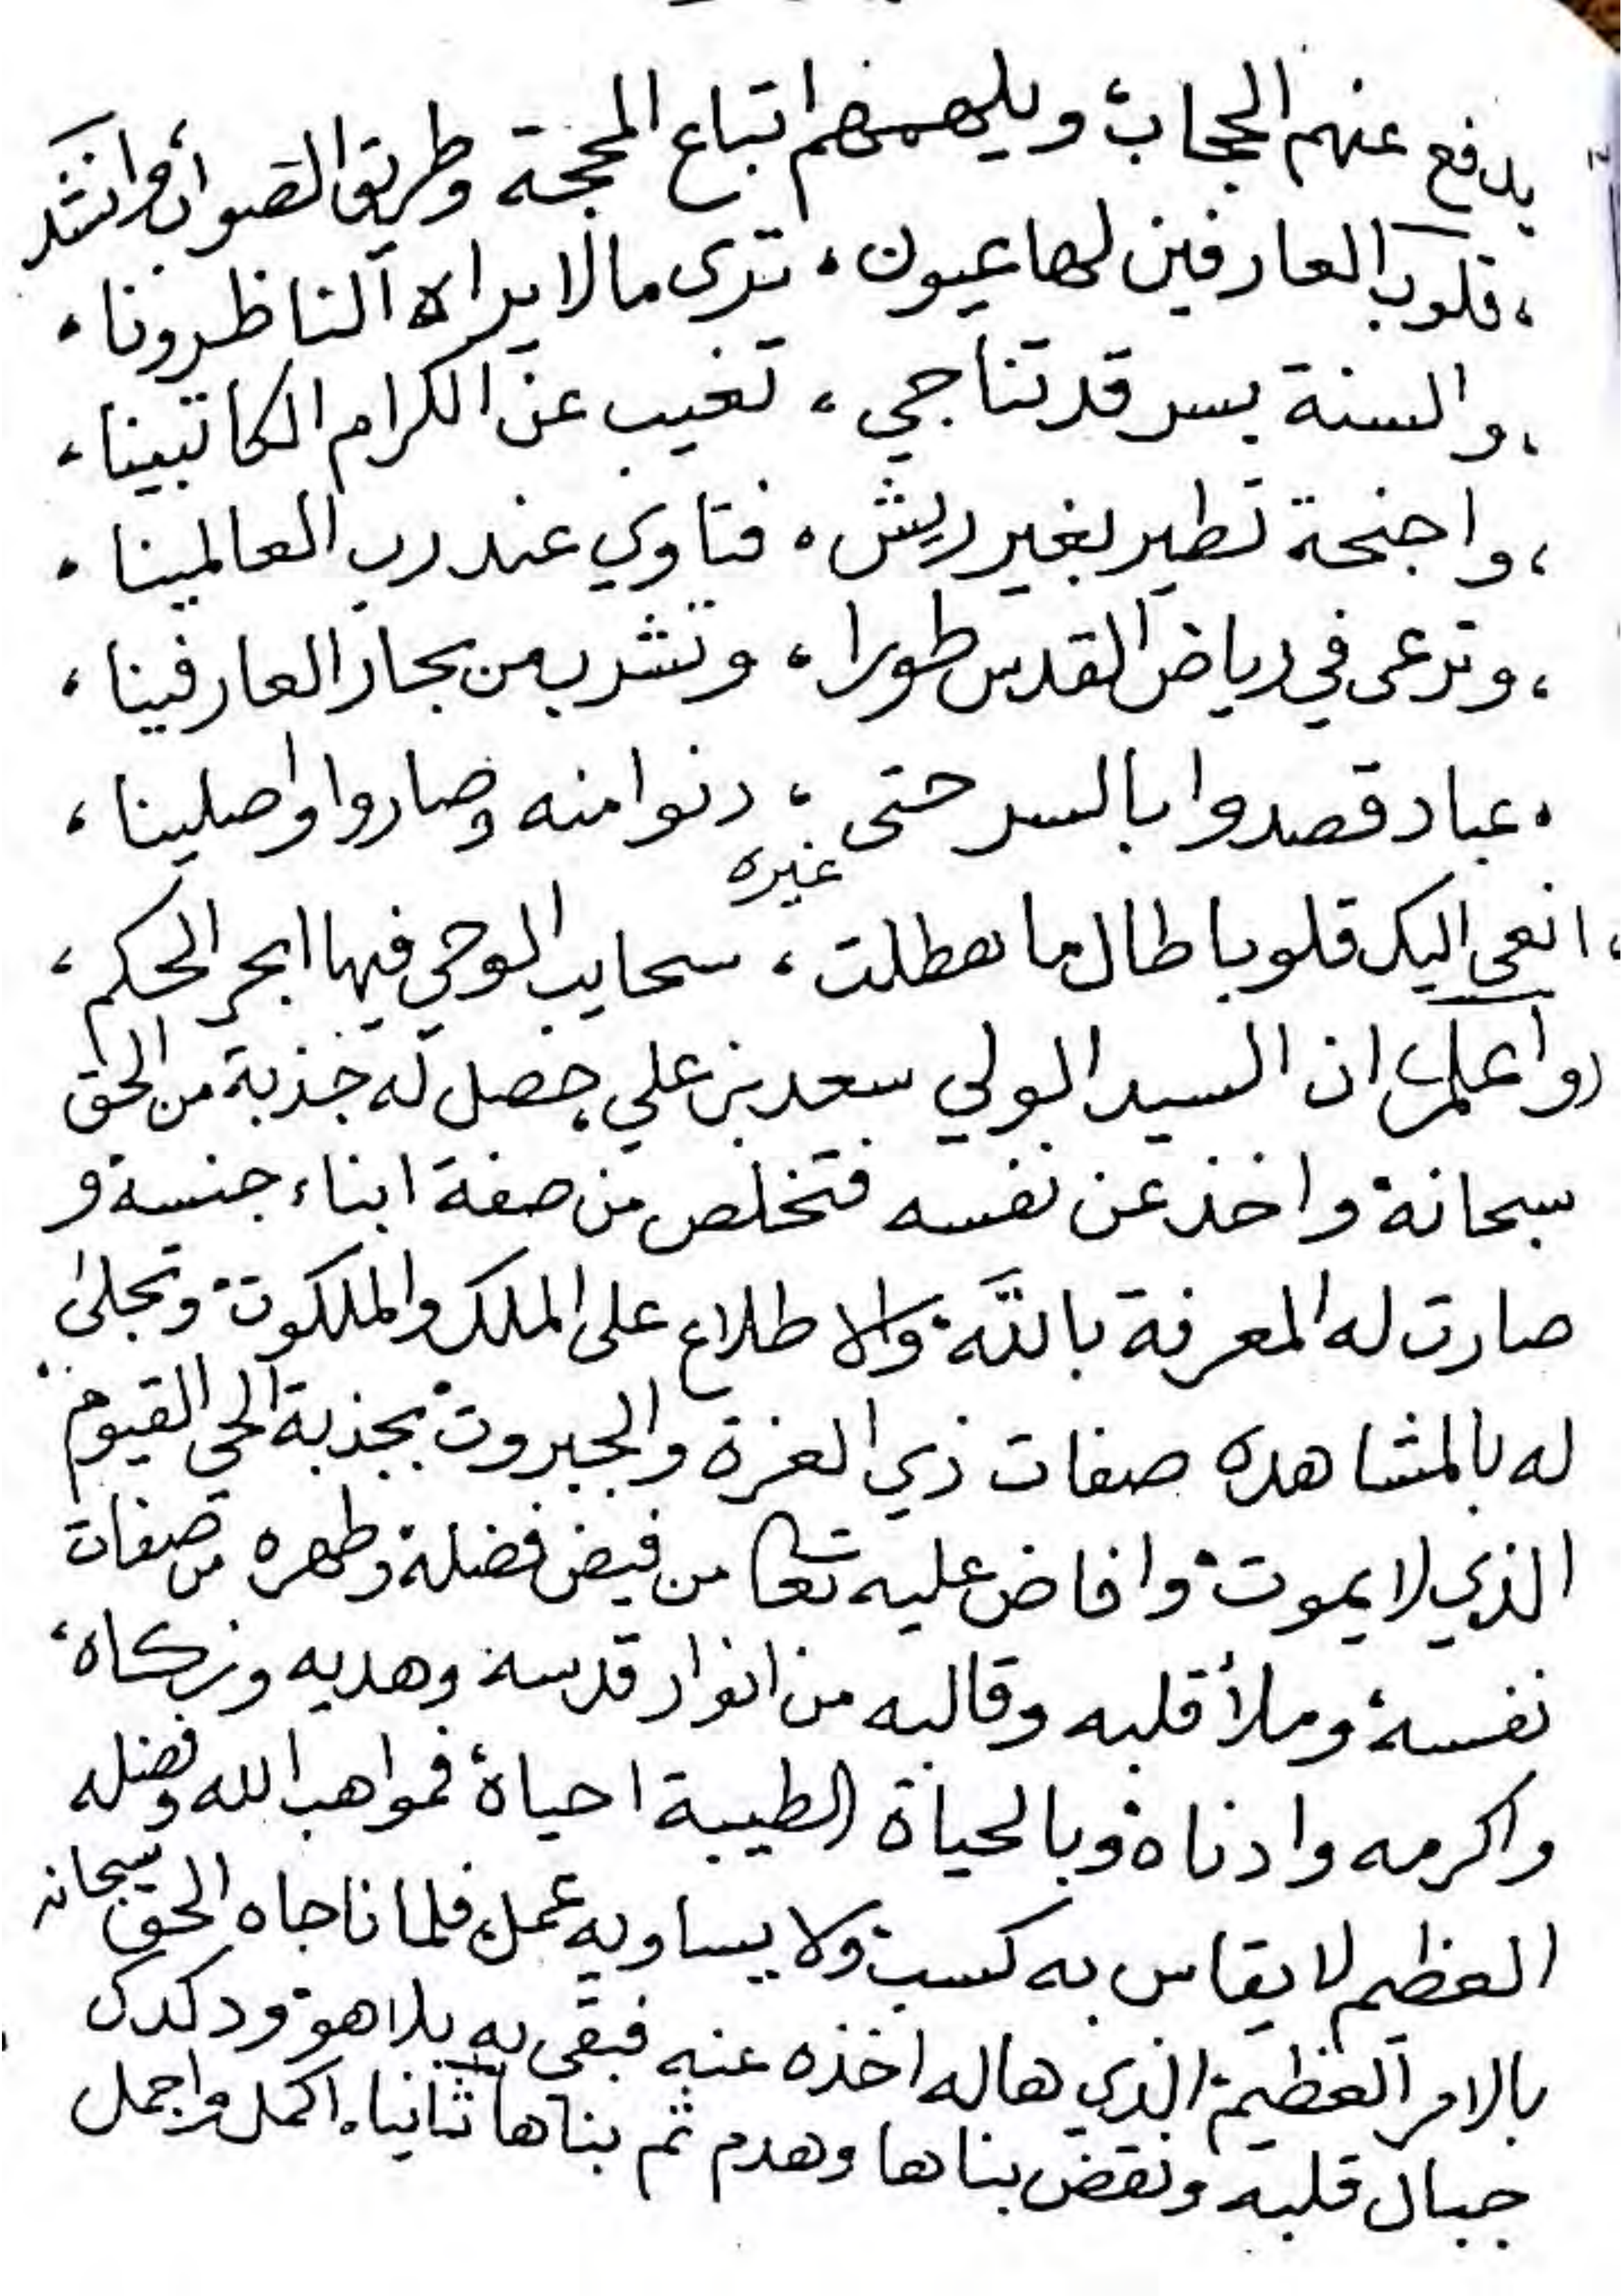 يدفع عنهم الحجاب، ويلهمهم اتباع المحجة وطريق الصواب وانشد
، قلوب العارفين لها عيون ، ترى مالا يراه الناظرونا ،
، والسنة بسر قد تناجي ، تغيب عن الكرام الكاتبينا ،
، واجنحة تطير بغير ريش ، فتاوي عند رب العالمينا ،
، وترعى في رياض القدس طورا ، وتشرب من بحار العارفينا ،
، عباد قصدوا بالسر حتى ، دنوا منه وصاروا واصلينا ،
غيره
، انعى اليك قلوبا طال ما هطلت ، سحايب الوحي فيها ابحر الحكم ،
واعلم ان السيد الولي سعد بن علي حصل له جذبة من الحق
سبحانه واخذ عن نفسه فتخلص من صفة ابناء جنسه و
صارت له المعرفة بالله والاطلاع على الملك والملكوت وتجلى
له بالمشاهده صفات ذي العزة والجبروت بجذبة الحي القيوم
الذي لا يموت وافاض عليه تعا من فيض فضله وطهره من صفات
نفسه وملأ قلبه وقالبه من انوار قدسه وهديه وزكاه،
واكرمه وادناه وبالحياة الطيبة احياه فمواهب الله وفضله
العظيم لا يقاس به كسب ولا يساويه عمل فلما ناجاه الحق سبحانه
بالامر العظيم الذي هاله اخذه عنه فبقى به بلا هو ودكدك
جبال قلبه ونقض بناها وهدم ثم بناها ثانيا، اكمل واجمل